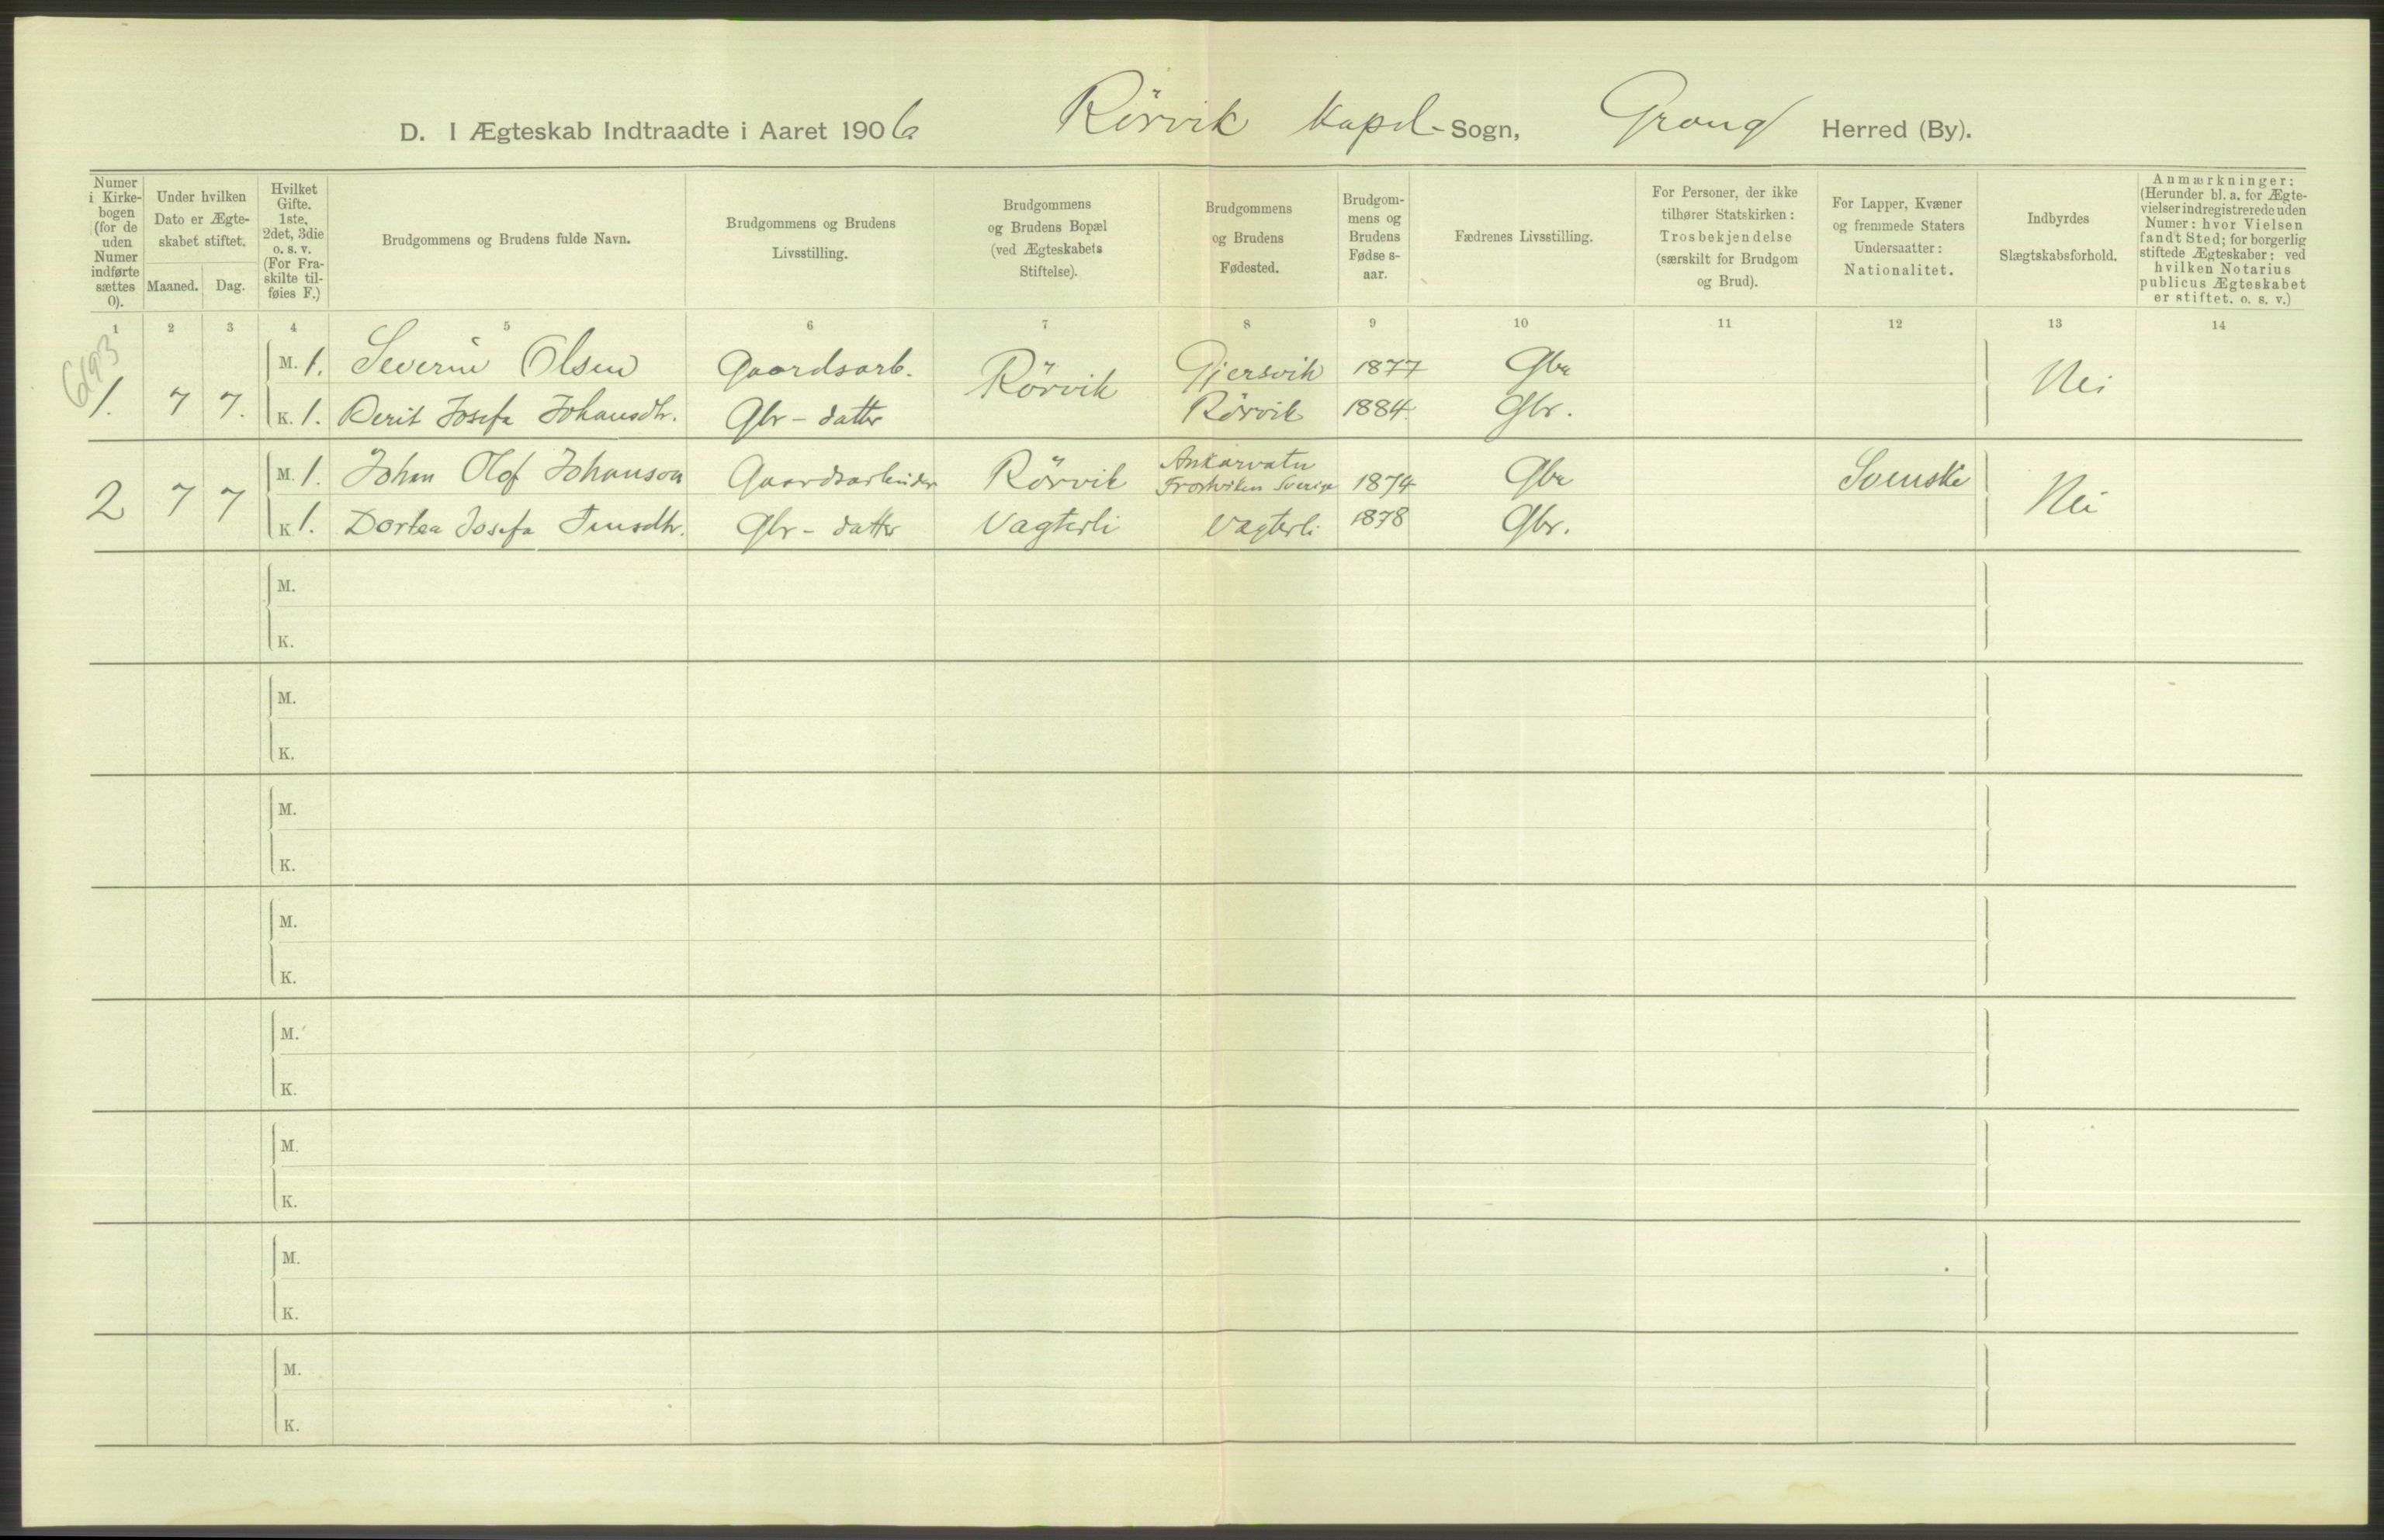 D. I Ægteskab Indtraadte i Aaret 1906 Rörvik Kapel-Sogn, Grong Herred (By).
Numer i Kirke- bogen (for de uden Numer indførte sættes 0).
Under hvilken Dato er Ægte- skabet stiftet.
Maaned. Dag.
Hvilket Gifte. 1ste, 2det, 3die o. s. v. (For Fra- skilte til- føies F.)
Brudgommens og Brudens fulde Navn.
Brudgommens og Brudens Livsstilling.
Brudgommens og Brudens Bopæl (ved Ægteskabets Stiftelse).
Brudgommens og Brudens Fødested.
Brudgom- mens og Brudens Fødse s- aar.
Fædrenes Livsstilling.
For Personer, der ikke tilhører Statskirken: Trosbekjendelse (særskilt for Brudgom og Brud).
For Lapper, Kvæner og fremmede Staters Undersaatter: Nationalitet.
Indbyrdes Slægtskabsforhold.
Anmærkninger: (Herunder bl. a. for Ægte- vielser indregistrerede uden Numer: hvor Vielsen fandt Sted; for borgerlig stiftede Ægteskaber: ved hvilken Notarius publicus Ægteskabet er stiftet. o. s. v.)
1 2 3 4 5 6 7 8 9 10 11 12 13 14
6193
M. 1. Severin Olsen Gaardsarb. Rörvik Gjersvik 1877 Gbr Nei
1. 7 7. K. 1. Berit Josefa Johansdtr. Gbr-datter Rörvik 1884 Gbr.
M. 1. Johan Olof Johanson Gaardsarbeider Rörvik Ankarvatn Frostviken Sverige 1874 Gbr Svenske Nei
2 7 7 K 1. Dortea Josefa Jensdtr. Gbr-datter Vagterli Vagterli 1878 Gbr.
M.
K.
M.
K.
M.
K.
M.
K.
M.
K.
M.
K.
M.
K.
M.
K.